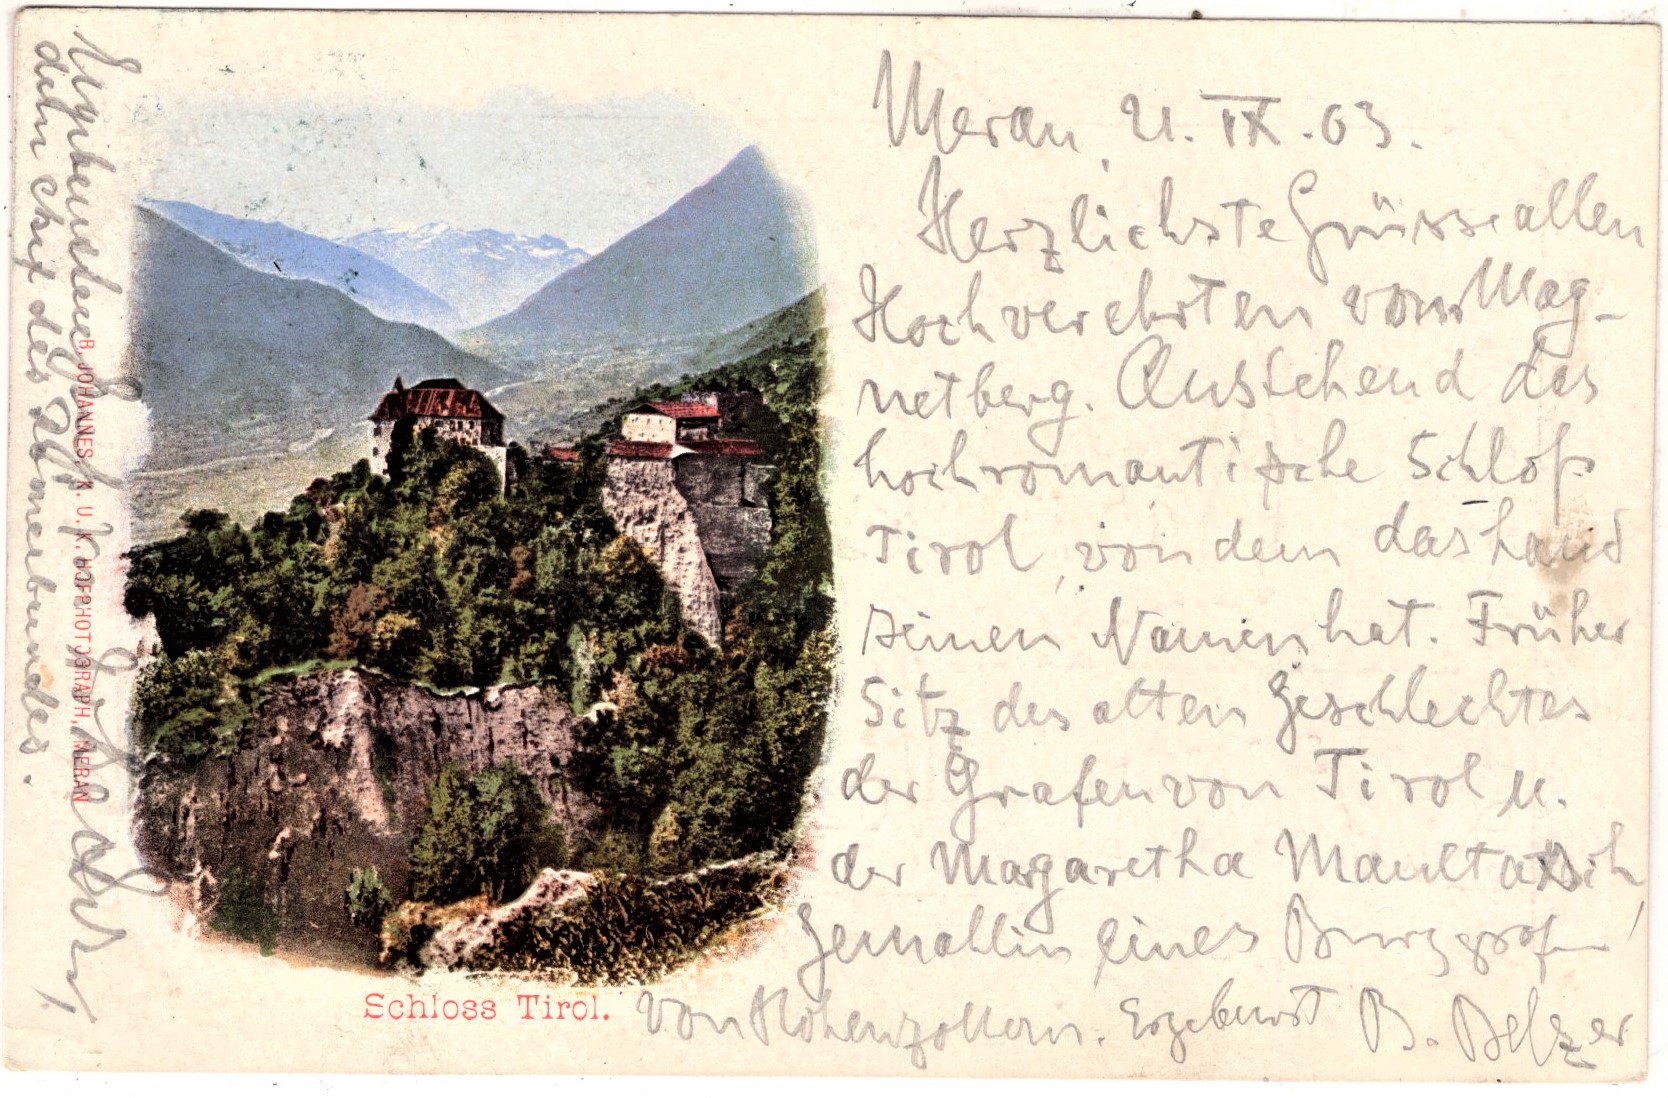 Meran, 21. IX. 03.
Herzlichste Grüsse allen
Hochverehrten vom Mag-
netberg. Anstehend das
hochromantische Schloß
Tirol, von dem das Land
seinen Namen hat. Früher
Sitz des alten Geschlechtes
der Grafen von Tirol u.
der Margaretha Maultasch,
Gemahlin eines Burggrafen
von Hohenzollern. Ergebenst B. Belzer
Schloss Tirol.
B. JOHANNES, K. U. K. HOFPHOTOGRAPH, MERAN
dem Chef des